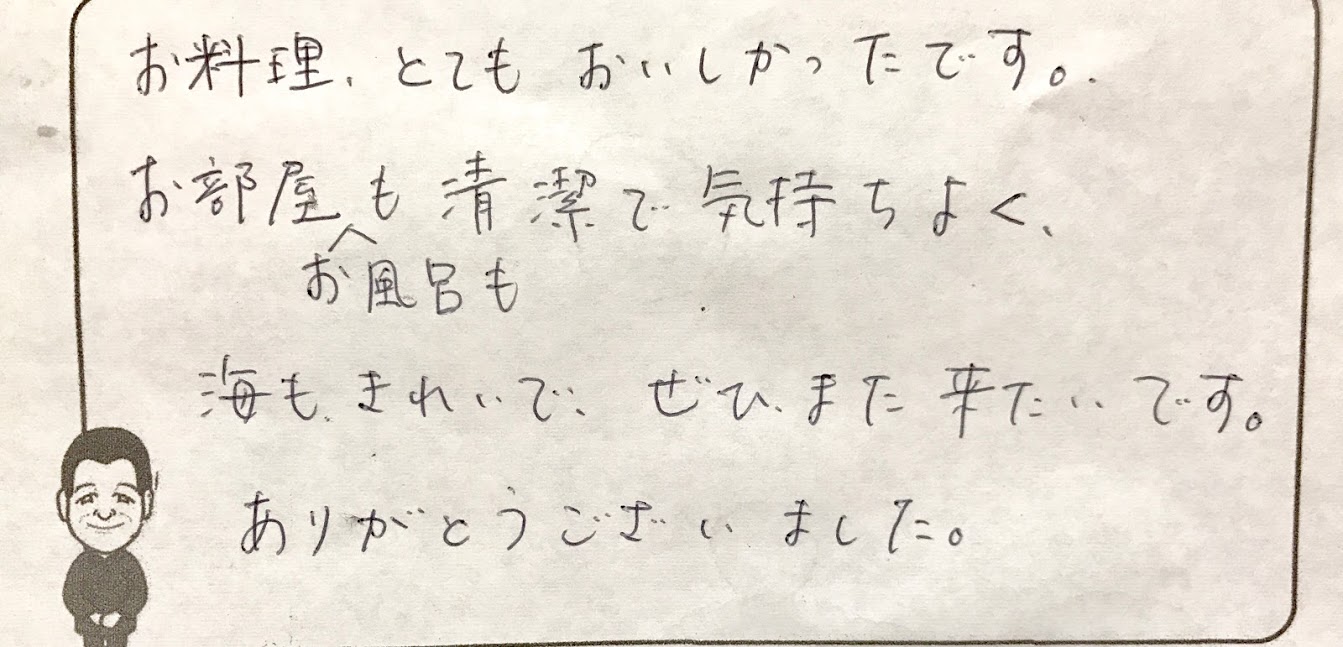 お料理、とても おいしかったです。
お部屋も清潔で気持ちよく、
お風呂も
海も、きれいで、ぜひ、また来たいです。
ありがとうございました。